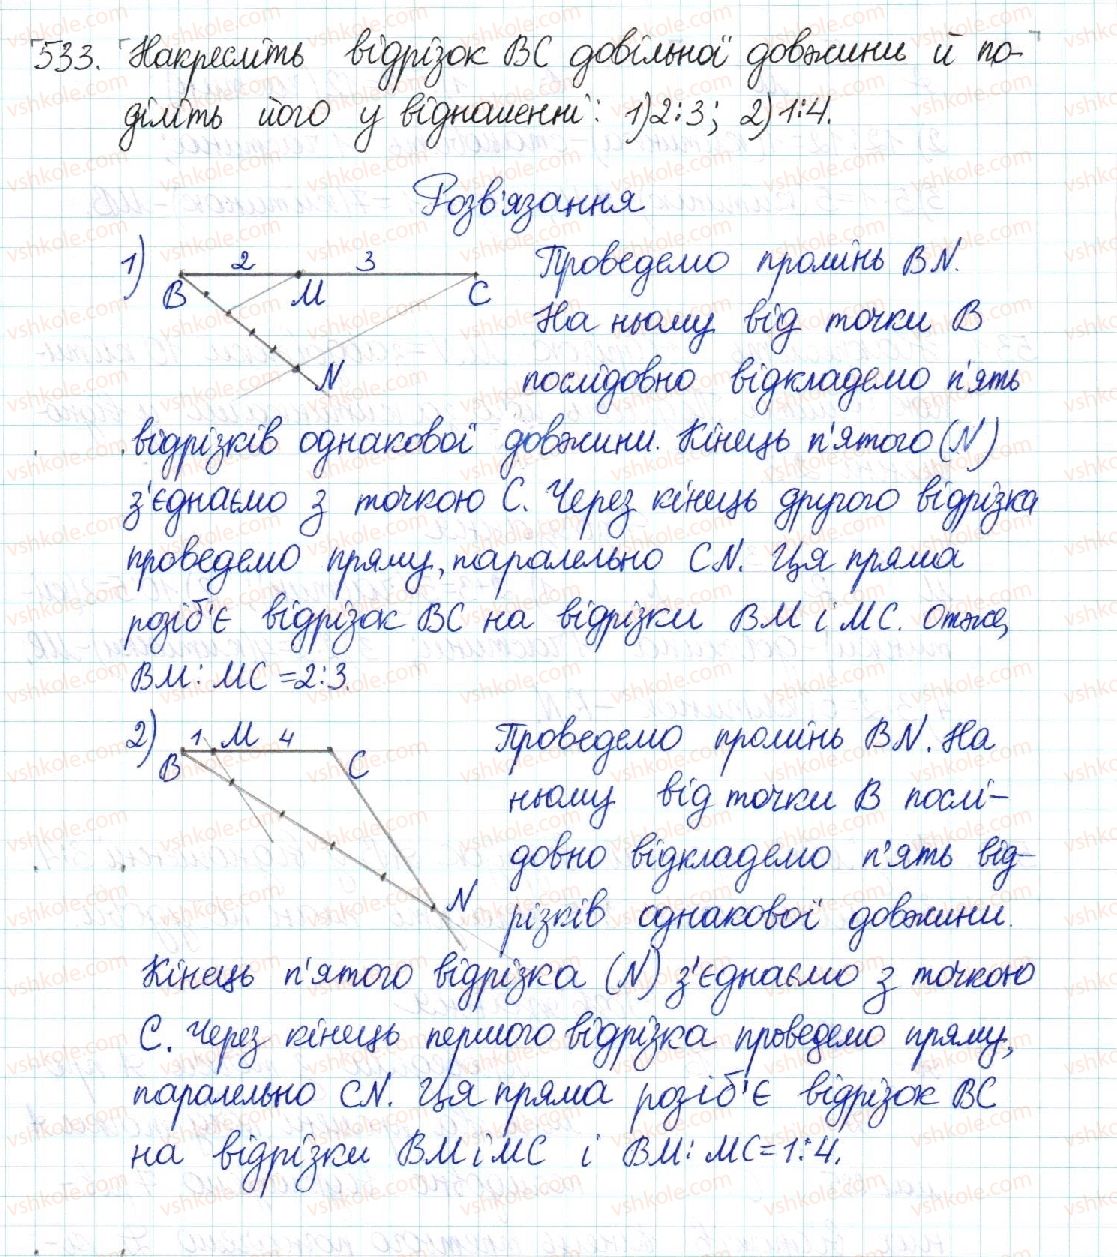 533. Накресліть відрізок BC довільної довжини й по-
діліть його у відношенні: 1) 2:3; 2) 1:4.
Розв'язання
1) B 2 M 3 C N
Проведемо промінь BN.
На ньому від точки B
послідовно відкладемо п'ять
відрізків однакової довжини. Кінець п'ятого (N)
з'єднаємо з точкою C. Через кінець другого відрізка
проведемо пряму, паралельно CN. Ця пряма
розіб'є відрізок BC на відрізки BM і MC. Отже,
BM : MC = 2:3.
2) B 1 M 4 C N
Проведемо промінь BN. На
ньому від точки B послі-
довно відкладемо п'ять від-
різків однакової довжини.
Кінець п'ятого відрізка (N) з'єднаємо з точкою
C. Через кінець першого відрізка проведемо пряму,
паралельно CN. Ця пряма розіб'є відрізок BC
на відрізки BM і MC і BM : MC = 1:4.